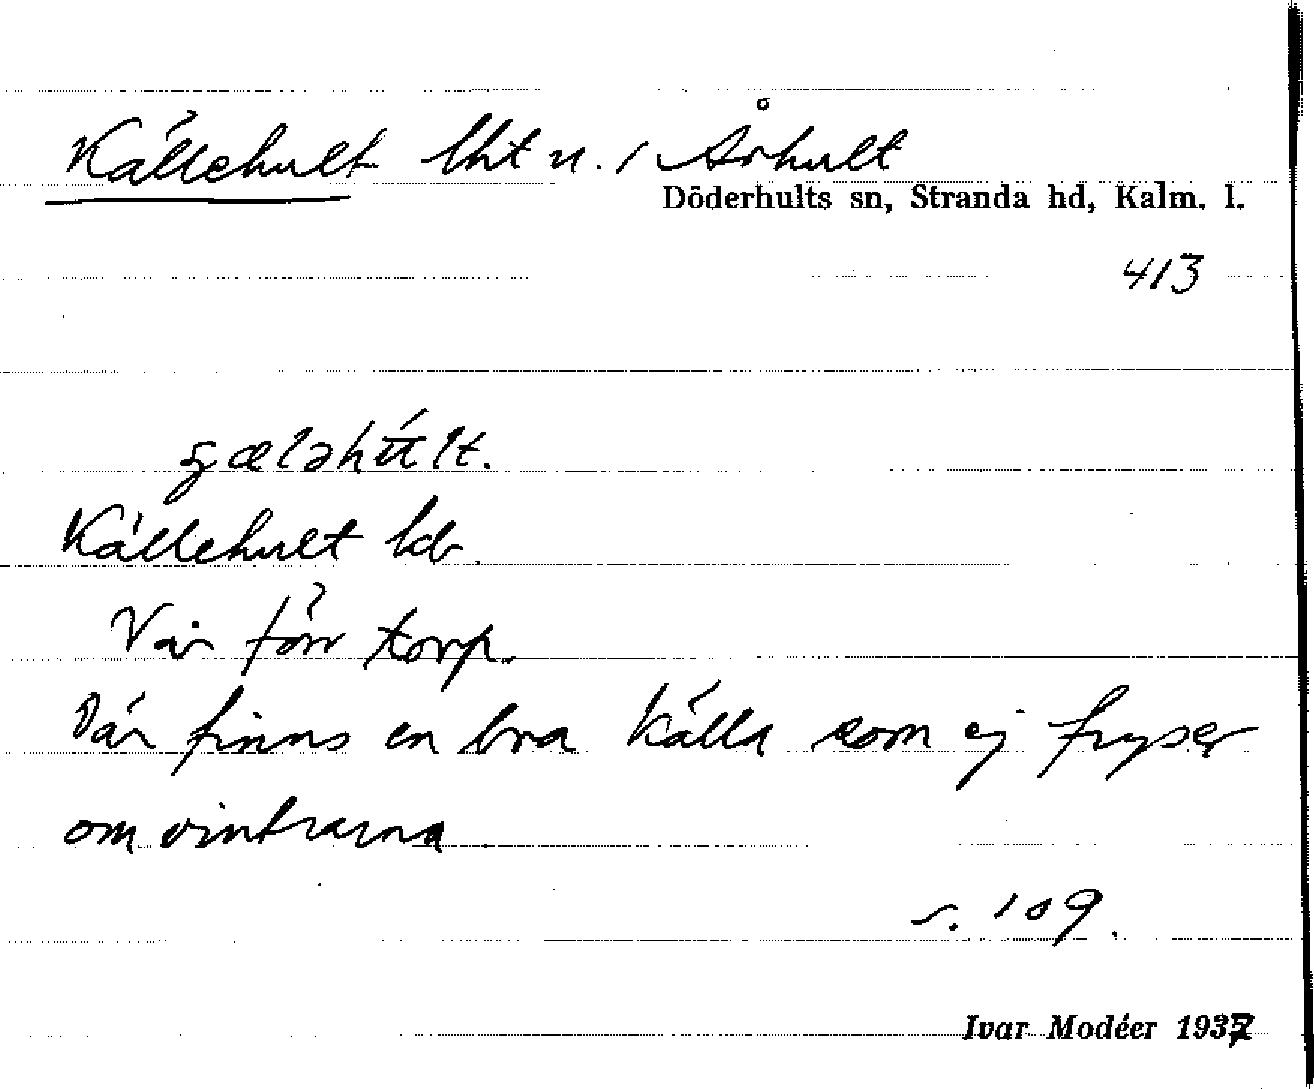 Källehult lht u. / Århult
Döderhults sn, Stranda hd, Kalm. l.
413
Källehult ldr.
Var förr torp.
Där finns en bra källa som ej fryser
om vintrarna
s. 109.
Ivar Modéer 1937